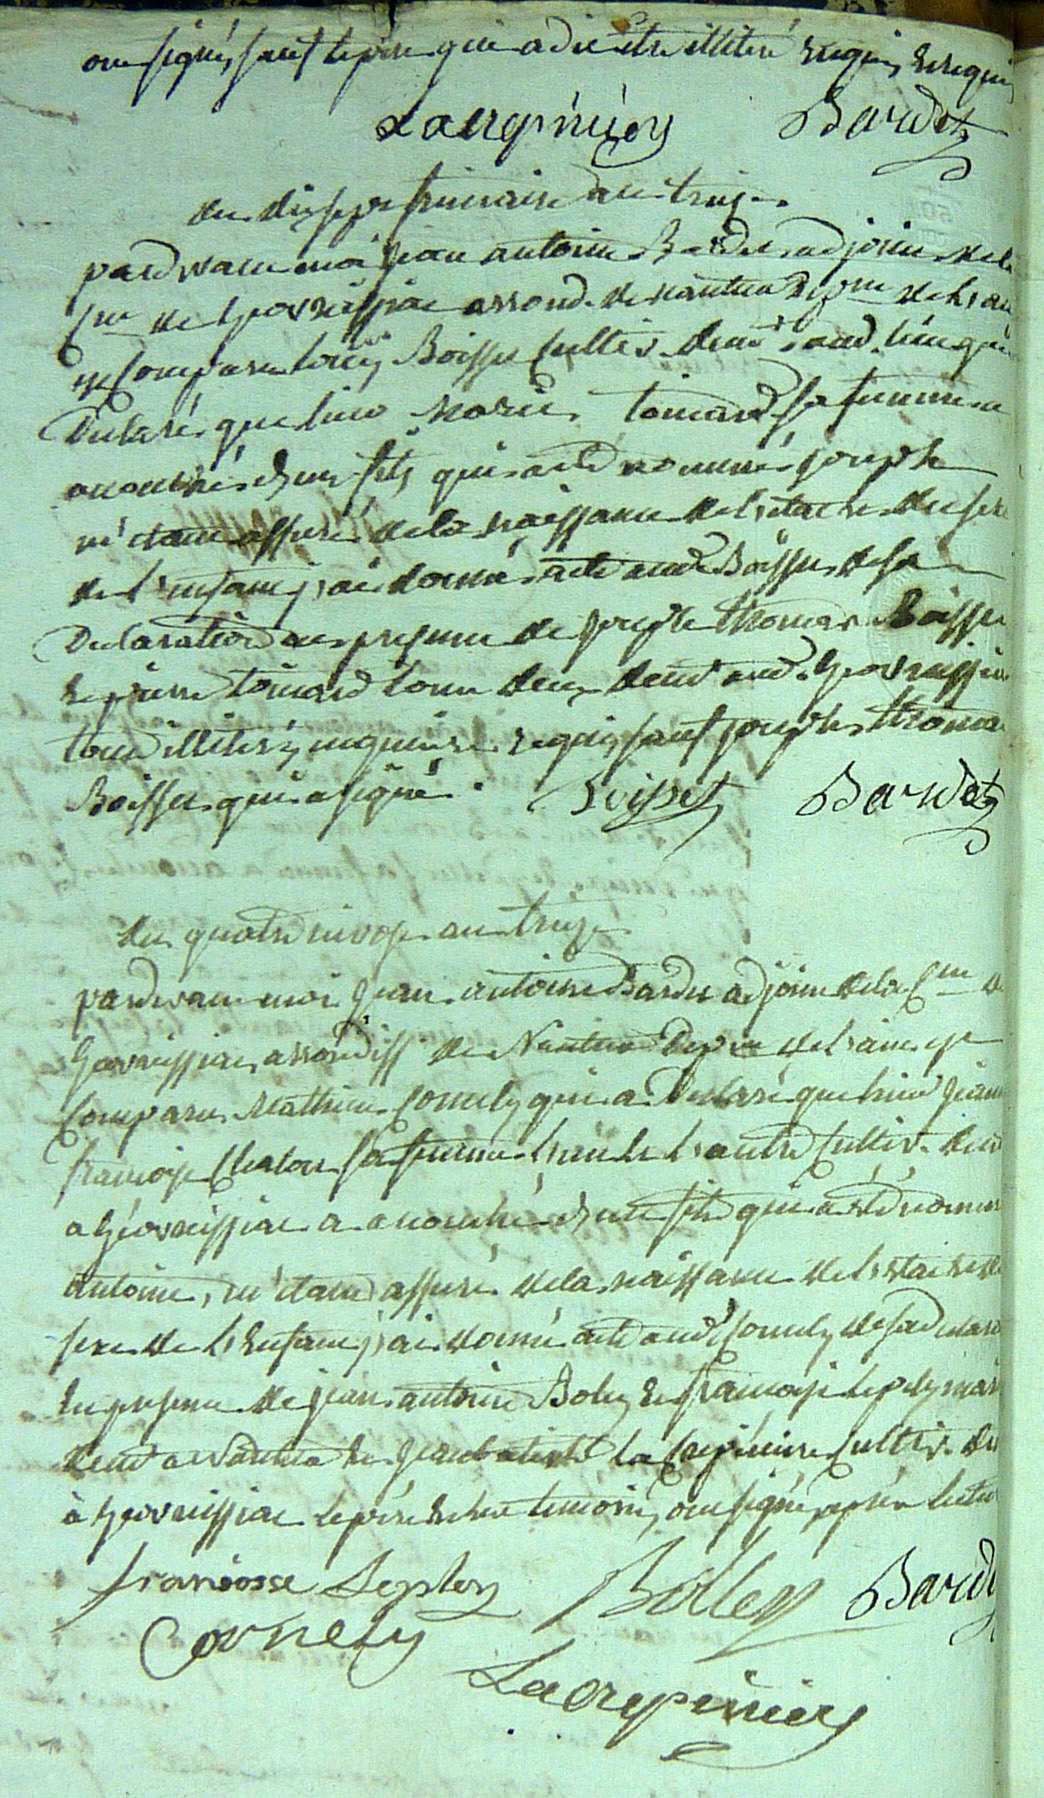 ont signé, sauf le père qui a dit etre illiteré enquis, et requis
Lacrepinière Bardet
du dix sept frimaire an treize
pardevant moi jean antoine Bardet adjoint de la
Cne de Geovreissiat arrond. de nantua Dptme de l'ain
est Comparu Boisset Cultiv. demt. aud. lieu qui a
Declaré que hier Marie Tournard sa femme a
accouché d'un fils qui a été nommé joseph
m'etant assuré de la naissance de l'etat et du sexe
de l'enfant j'ai donné acte aud. Boisset de sa
Declaration en presence de joseph thomas Boisset
et pierre tournard tous deux demt aud. Geovreissiat
tous illiterés enquis et requis sauf joseph thomas
Boisset qui a signé.
Boisset Bardet
du quatre nivose an treize
pardevant moi jean antoine Bardet adjoint de la Cne de
Geovreissiat arrondiss de Nantua Depnt de l'ain est
Comparu Mathieu Cornely qui a Declaré que hier jeanne
francoise Chatou sa femme l'un et l'autre Cultiv. demt
a Géovreissiat a accouché d'un fils qui a été nommé
antoine, m'etant assuré de la naissance de l'etat et du
sexe de l'Enfant j'ai donné acte aud. Cornely de sa declara
En presence de jean antoine Boley et francoise
demt a Nantua et jeanbatiste la Crepiniere Cultiv. dt
à Geovreissiat le père et les temoins, ont signé, après lecture
francosse Bolley Bardet
Cornely
Lacrepiniere